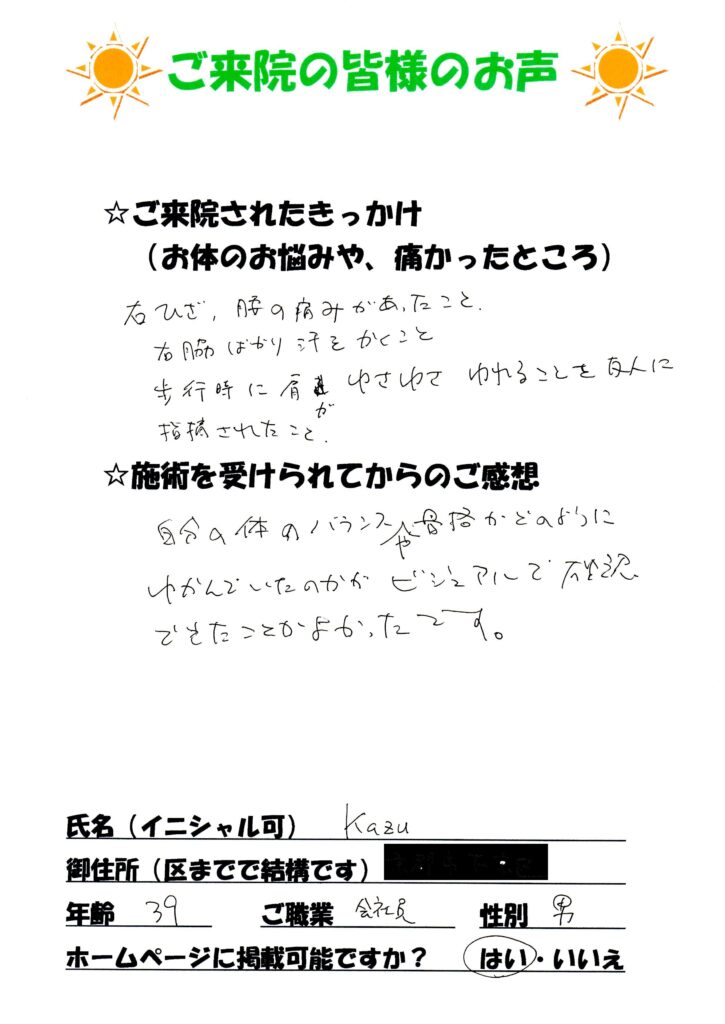 ご来院の皆様のお声
☆ご来院されたきっかけ
（お体のお悩みや、痛かったところ）
右ひざ，腰の痛みがあったこと．
右脇ばかり汗をかくこと
歩行時に肩がゆさゆさ ゆれることを友人に
指摘されたこと．
☆施術を受けられてからのご感想
自分の体のバランスや骨格がどのように
ゆがんでいたのかが ビジュアルで確認
できたことがよかったです。
氏名（イニシャル可） Kazu
御住所（区までで結構です）
年齢 39 ご職業 会社員 性別 男
ホームページに掲載可能ですか？ はい・いいえ